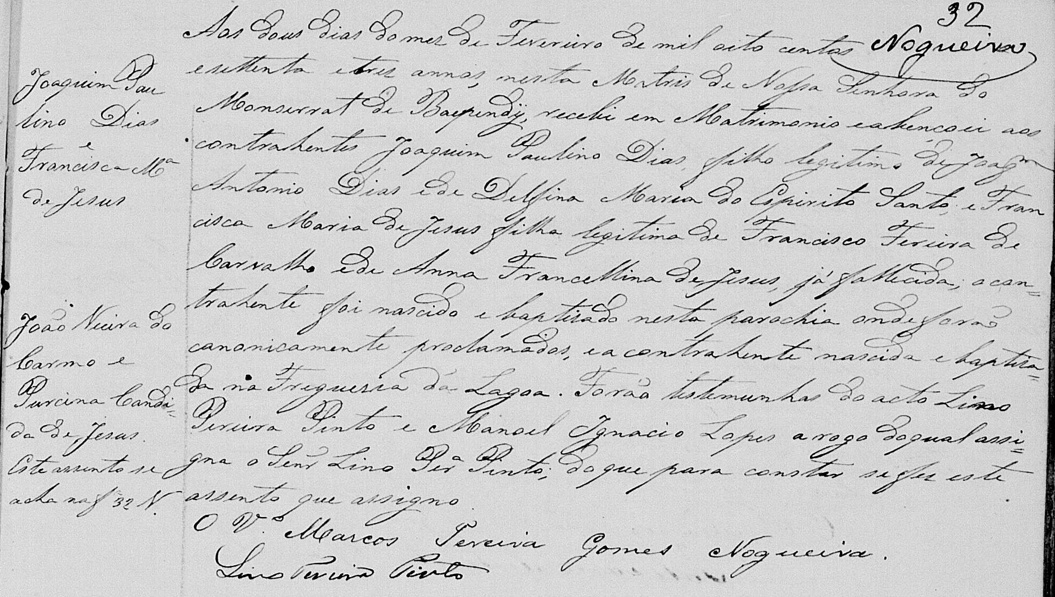 32
Nogueira
Joaquim Pau
lino Dias
e
Francisca Mª
de Jesus
João Vieira do
Carmo e
Purcina Candi-
da de Jesus.
Este assento se
acha na f 32 V.
Aos dous dias do mez de Fevereiro de mil oito centos
e settenta e tres annos, nesta Matris de Nossa Senhora do
Monserrat de Baependÿ, recebi em Matrimonio e abençoei aos
contrahentes Joaquim Paulino Dias, filho legitimo de Joaqm
Antonio Dias e de Delfina Maria do Espirito Santo, e Fran
cisca Maria de Jesus filha legitima de Francisco Fereira de
Carvalho e de Anna Francellina de Jesus, já fallecida; o con=
trahente foi nascido e baptisado nesta parochia onde forão
canonicamente proclamados, e a contrahente nascida e baptisa-
da na Freguesia da Lagoa. Forão testemunhas do acto Lino
Pereira Pinto e Manoel Ignacio Lopes a rogo do qual assi=
gna o Senr Lino Perª Pinto; do que para constar se fes este
assento que assigno.
O Vº Marcos Pereira Gomes Nogueira.
Lino Pereira Pinto